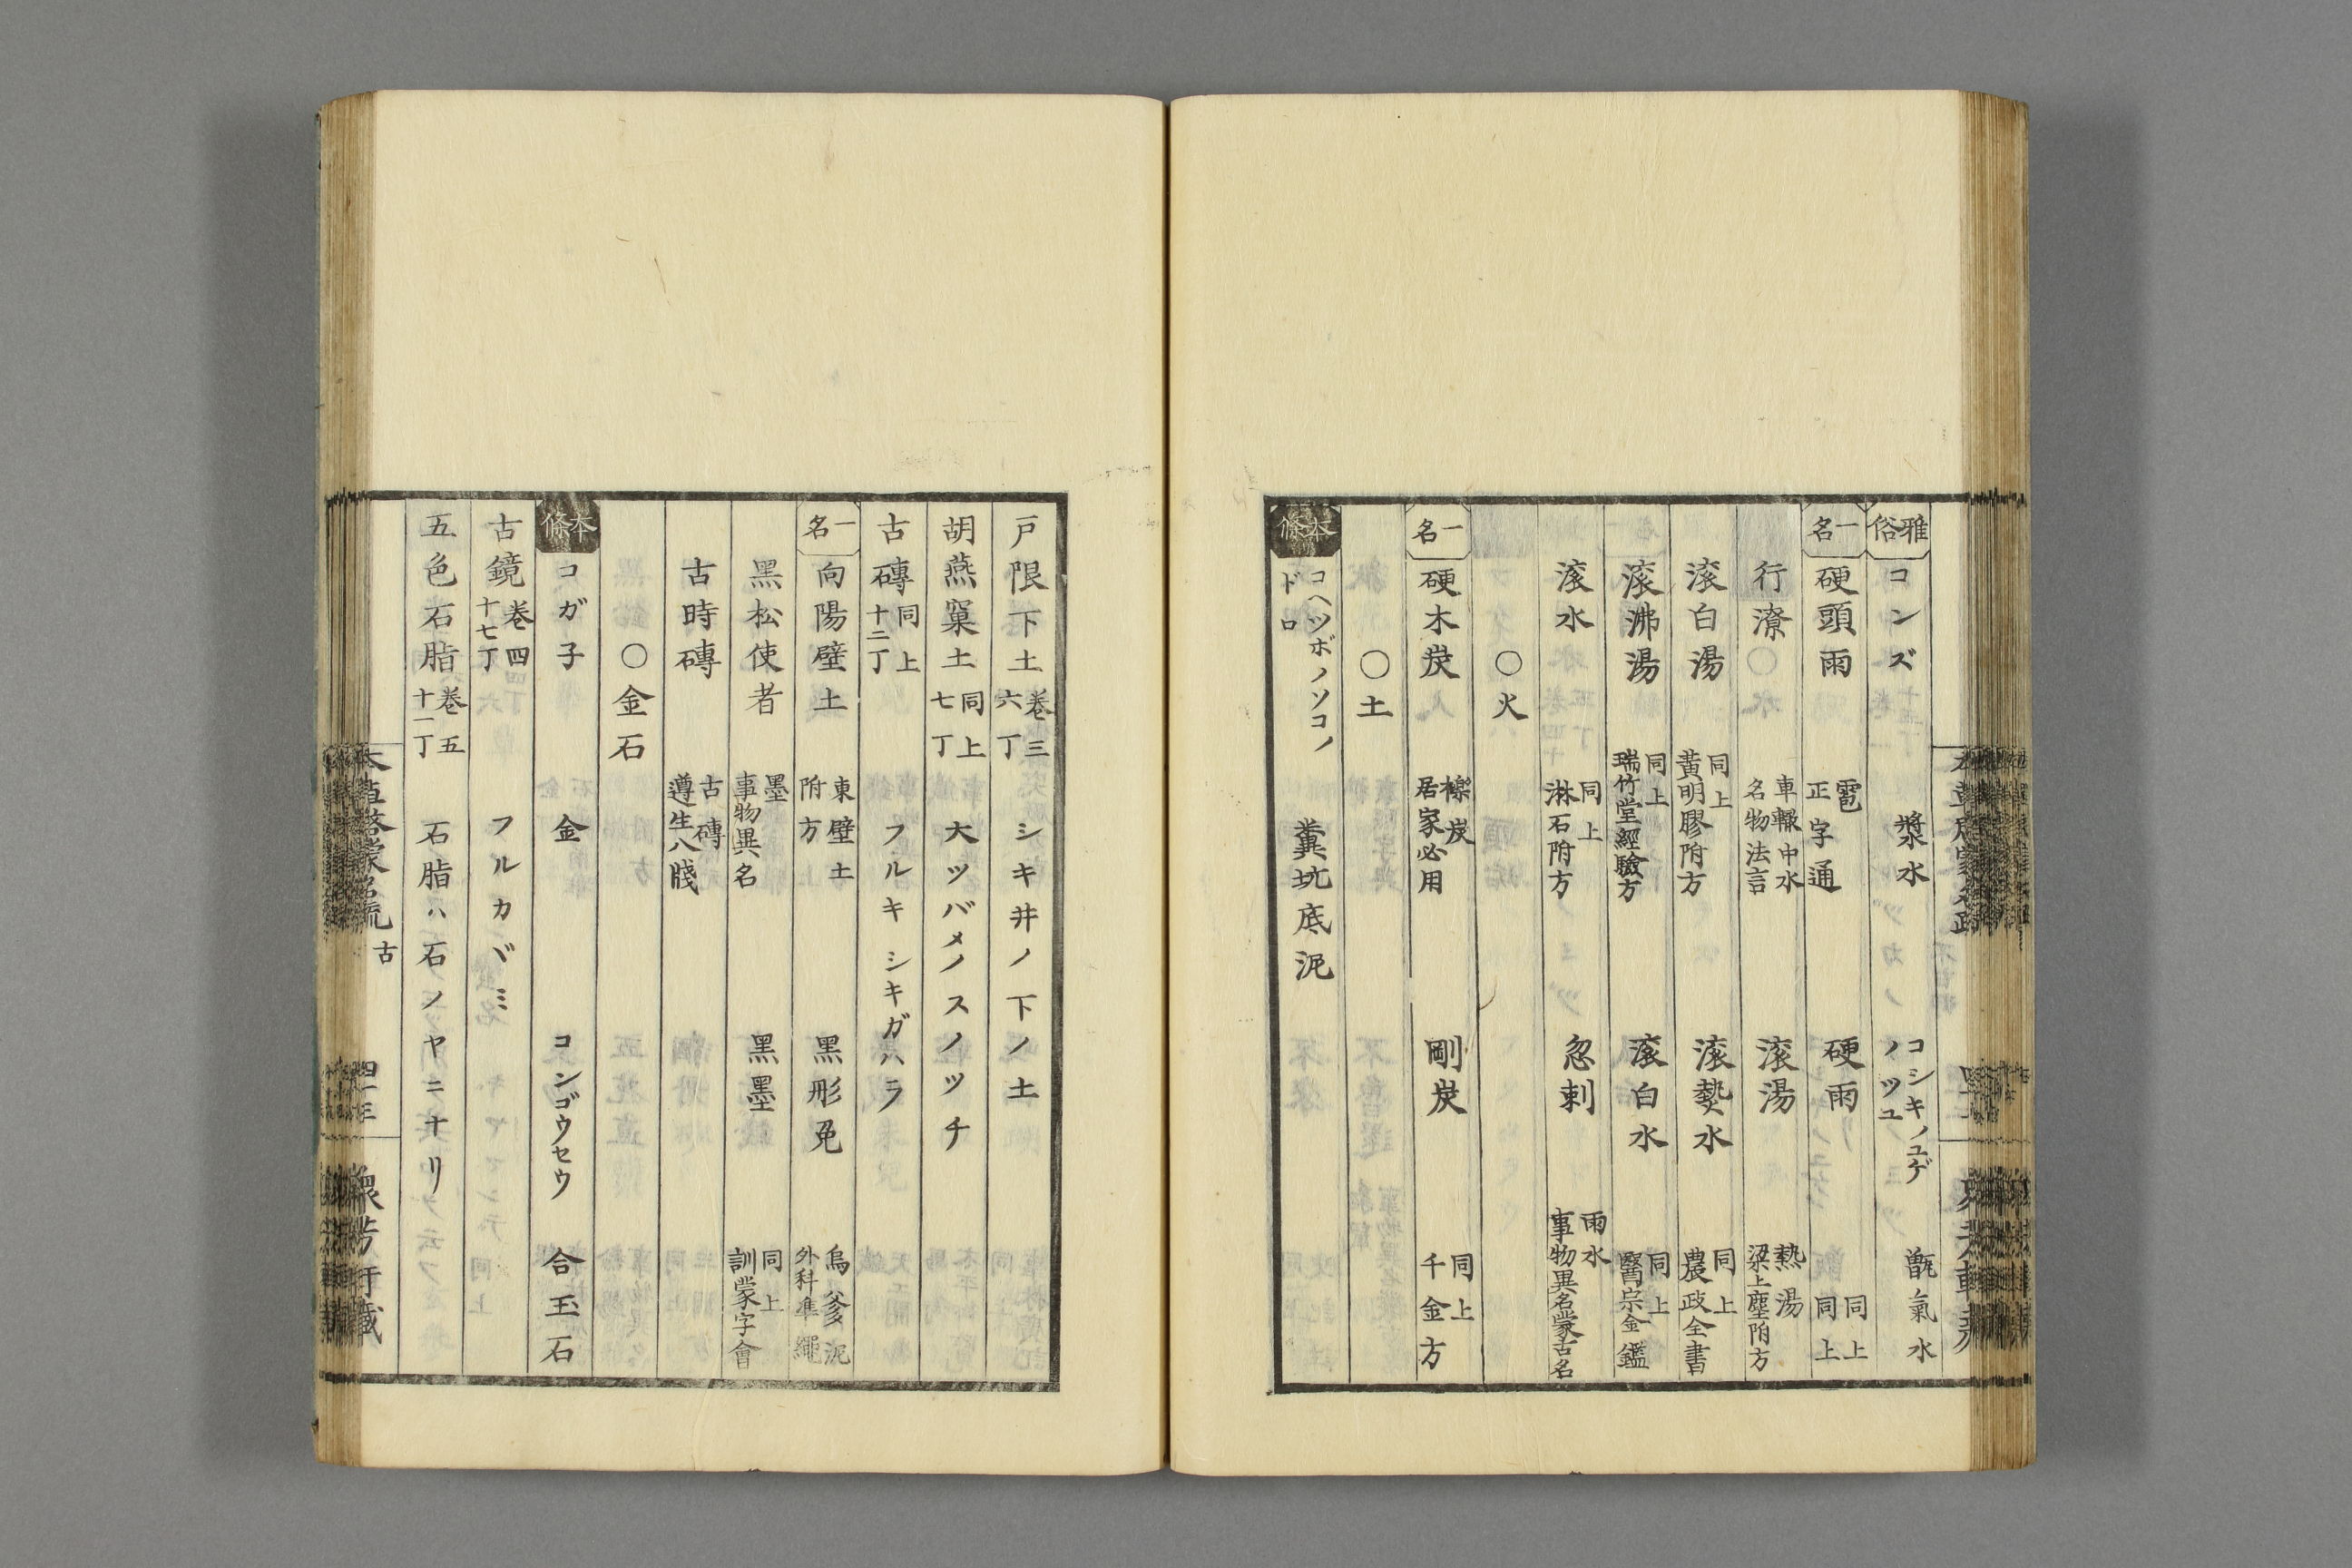 雅俗 コンズ 漿水 コシキノユゲノツユ 甑氣水
一名 硬頭雨 雹 正字通 硬雨 同上 同上
行潦 車轍中水 名物法言 滚湯 熱湯 梁上塵附方
滚白湯 同上 黄明膠附方 滚熱水 同上 農政全書
滚沸湯 同上 瑞竹堂經驗方 滚白水 同上 醫宗金鑑
滚水 同上 淋石附方 忽剌 雨水 事物異名蒙古名
〇火
一名 硬木炭 櫟炭 居家必用 剛炭 同上 千金方
〇土
本條 コヘツボノソコノドロ 糞坑底泥
戸限下土 卷三 六丁 シキ井ノ下ノ土
胡燕窠土 同上 七丁 大ツバメノスノツチ
古磚 同上 十二丁 フルキシキガハラ
一名 向陽壁土 東壁土 附方 黑形免 烏爹泥 外科準繩
黑松使者 墨 事物異名 黑墨 同上 訓蒙字會
古時磚 古磚 遵生八牋
〇金石
本條 コガ子 金 コンゴウセウ 合玉石
古鏡 卷四 十七丁 フルカヾミ
五色石脂 卷五 十一丁 石脂ハ石ノヤニナリ
本草啓蒙名疏 古